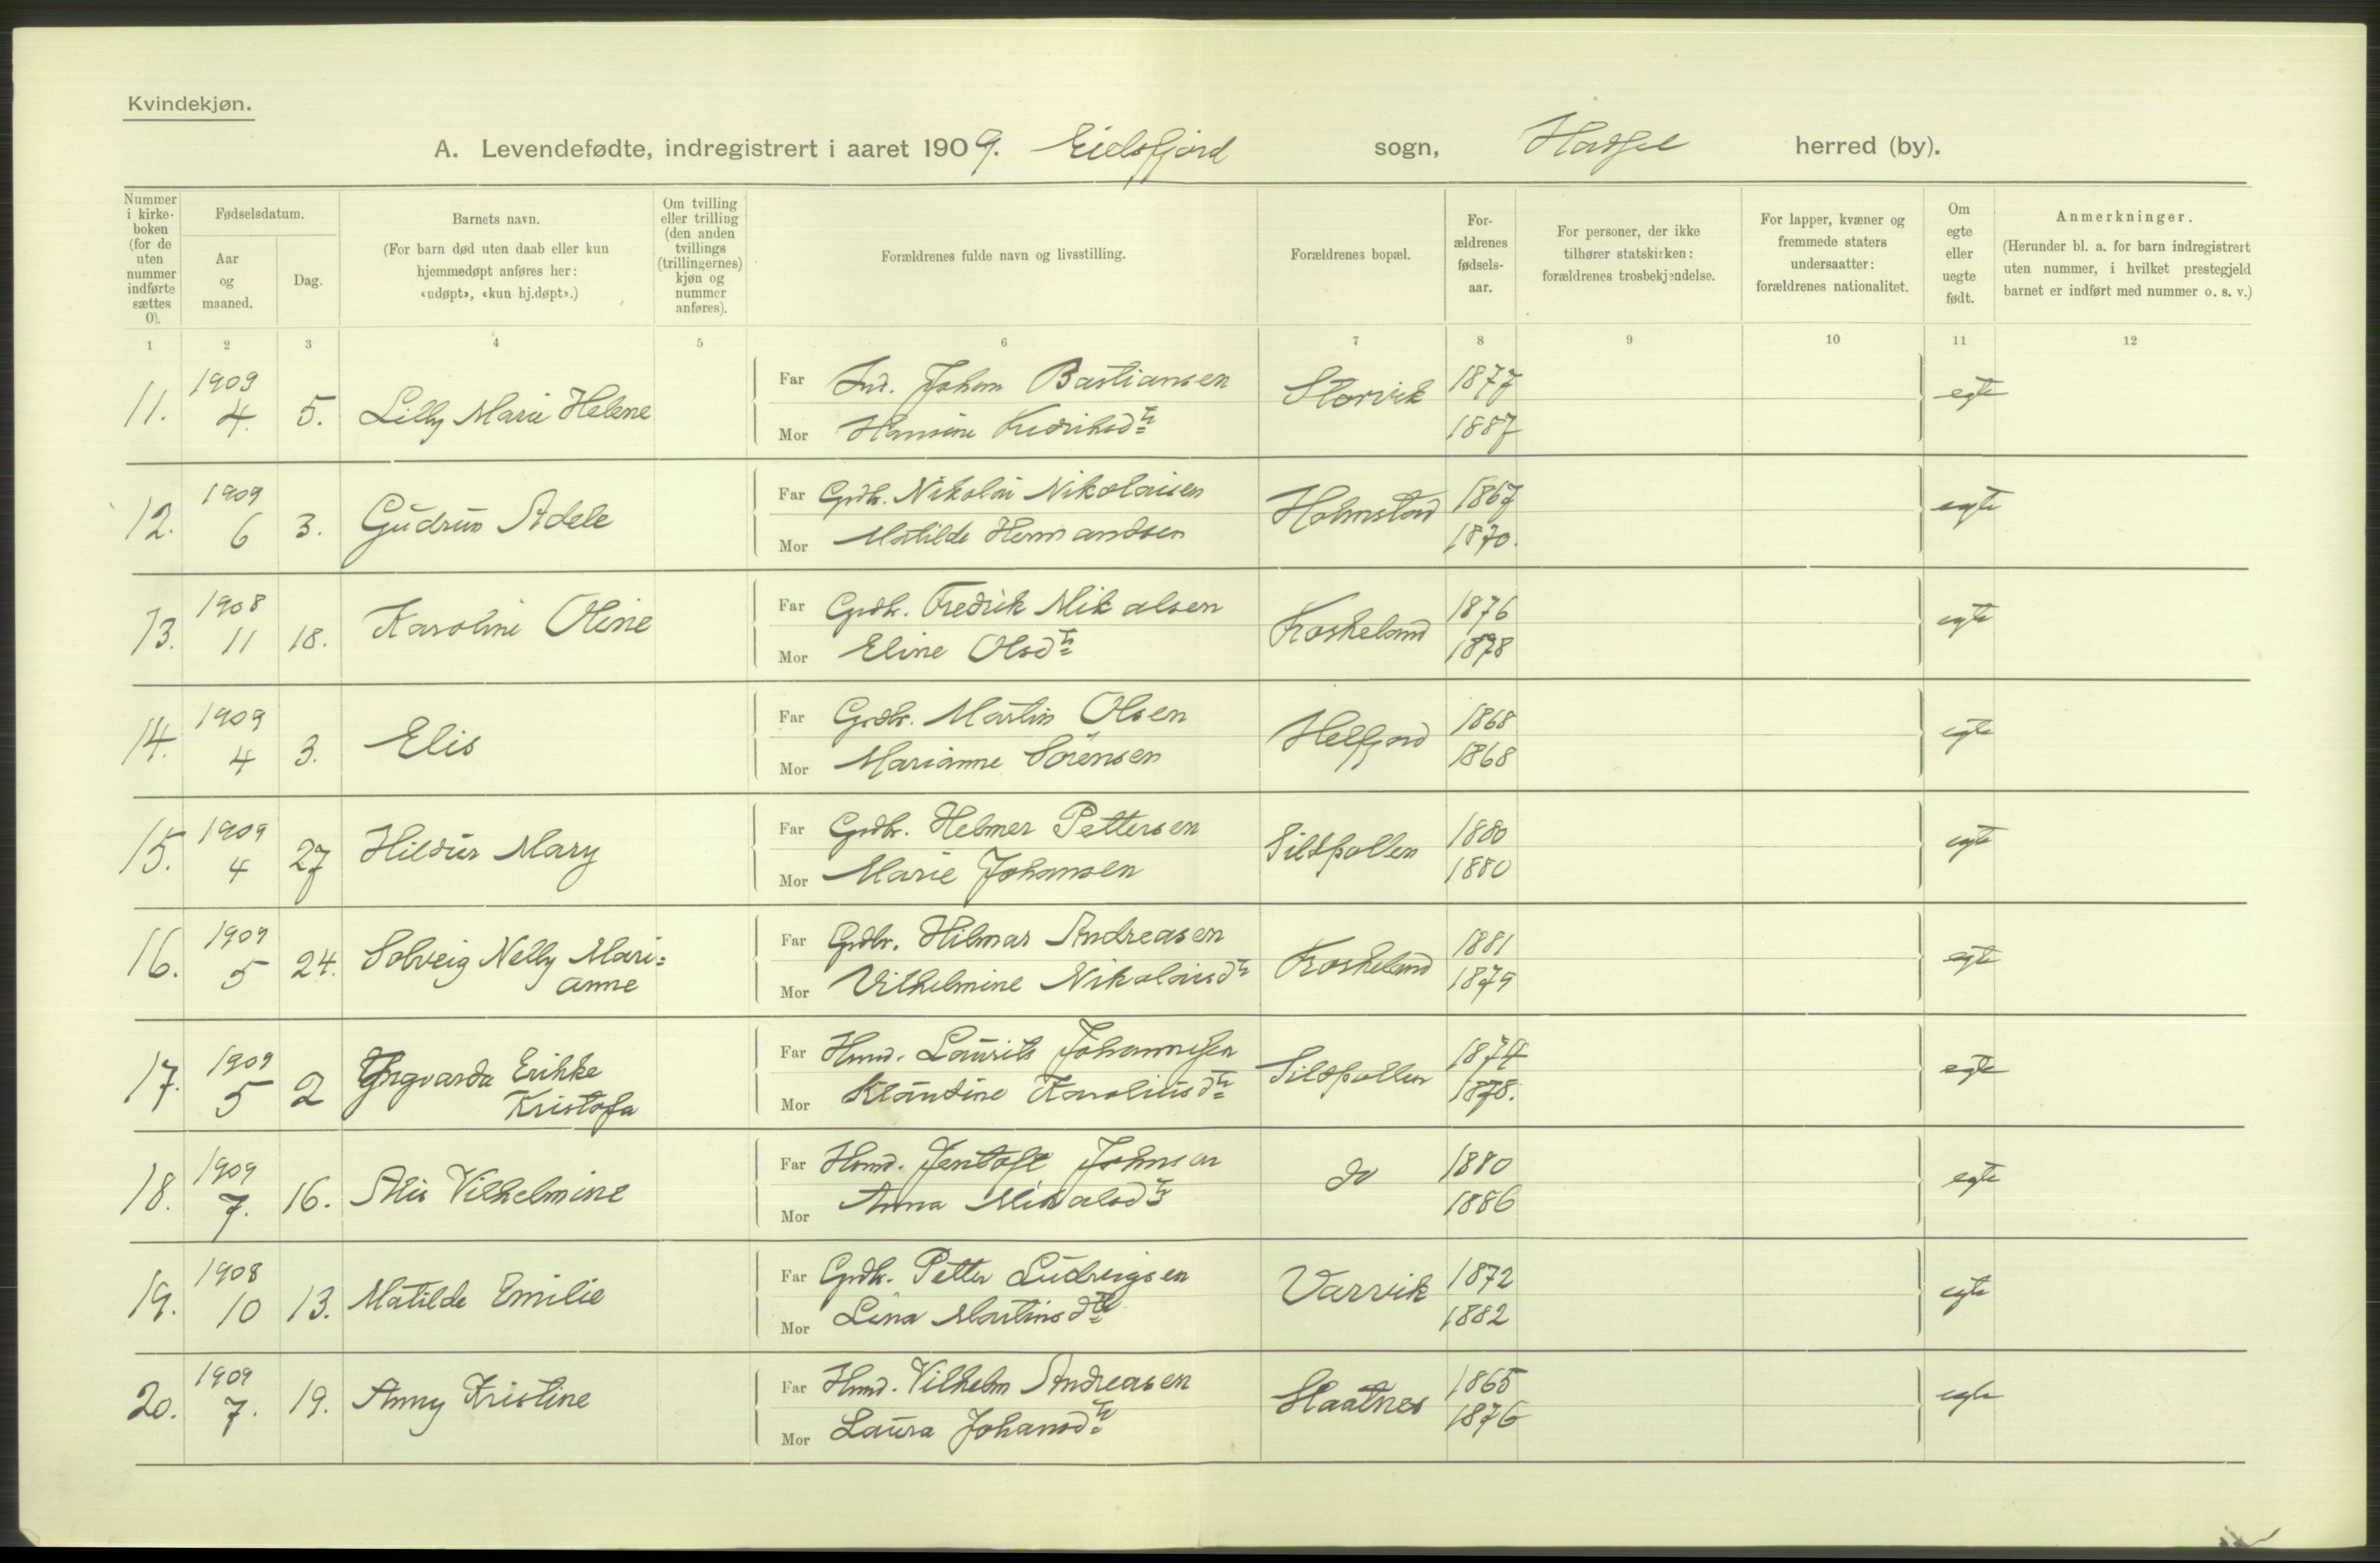 Kvindekjøn.
A. Levendefødte, indregistrert i aaret 1909. Eidsfjord sogn, Hadsel herred (by).
Nummer i kirke- boken (for de uten nummer indførte sættes 0).
Fødselsdatum.
Aar og maaned.
Dag.
Barnets navn.
(For barn død uten daab eller kun hjemmedøpt anføres her: «udøpt», «kun hj.døpt».)
Om tvilling eller trilling (den anden tvillings (trillingernes) kjøn og nummer anføres).
Forældrenes fulde navn og livsstilling.
Forældrenes bopæl.
For- ældrenes fødsels- aar.
For personer, der ikke tilhører statskirken: forældrenes trosbekjendelse.
For lapper, kvæner og fremmede staters undersaatter: forældrenes nationalitet.
Om egte eller uegte født.
Anmerkninger.
(Herunder bl. a. for barn indregistrert uten nummer, i hvilket prestegjeld barnet er indført med nummer o. s. v.)
1 2 3 4 5 6 7 8 9 10 11 12
11. 1909 4. 5. Lilly Marie Helene Far Ind. Johan Bastiansen Storvik 1877 egte
Mor Hansine Fredriksdtr 1887
12. 1909 6 3. Gudrun Adele Far Grdbr. Nikolai Nikolaisen Holmstad 1867 egte
Mor Matilde Hermandsen 1870.
13. 1908 11 18. Karoline Oline Far Grdbr. Fredrik Mikalsen Froskeland 1876 egte
Mor Eline Olsdtr 1878
14. 1909 4 3. Elis Far Grdbr. Martin Olsen Helfjord 1868 egte
Mor Marianne Sørensen 1868
15. 1909 4 27 Hildur Mary Far Grdbr. Helmer Pettersen Sildpollen 1880 egte
Mor Marie Johansen 1880
16. 1909 5 24. Solveig Nelly Mari= anne Far Grdbr. Hilmar Andreasen Froskeland 1881 egte
Mor Vilhelmine Nikolaisdtr 1879
17. 1909 5 2 Yngvarda Erikke Kristofa Far Hmd. Laurits Johannesen Sildpollen 1874 egte
Mor Klaudine Karoliusdtr 1878.
18. 1909 7. 16. Alis Vilhelmine Far Hmd. Jentoft Johnsen do 1880 egte
Mor Anna Mikalsdtr 1886
19. 1908 10 13. Matilde Emilie Far Grdbr. Petter Ludvigsen Varvik 1872 egte
Mor Lina Martinsdtr 1882
20. 1909 7. 19. Anny Kristine Far Hmd. Vilhelm Andreasen Slaatnes 1865 egte
Mor Laura Johansdtr 1876